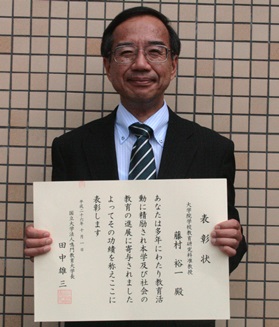 表彰状
大学院学校教育研究科准教授
藤村裕一殿
あなたは多年にわたり教育活
動に精励され本学及び社会の
教育の進展に寄与されました
よってその功績を称えここに
表彰します
平成二十六年十月一日
国立大学法人鳴門教育大学長
田中雄三